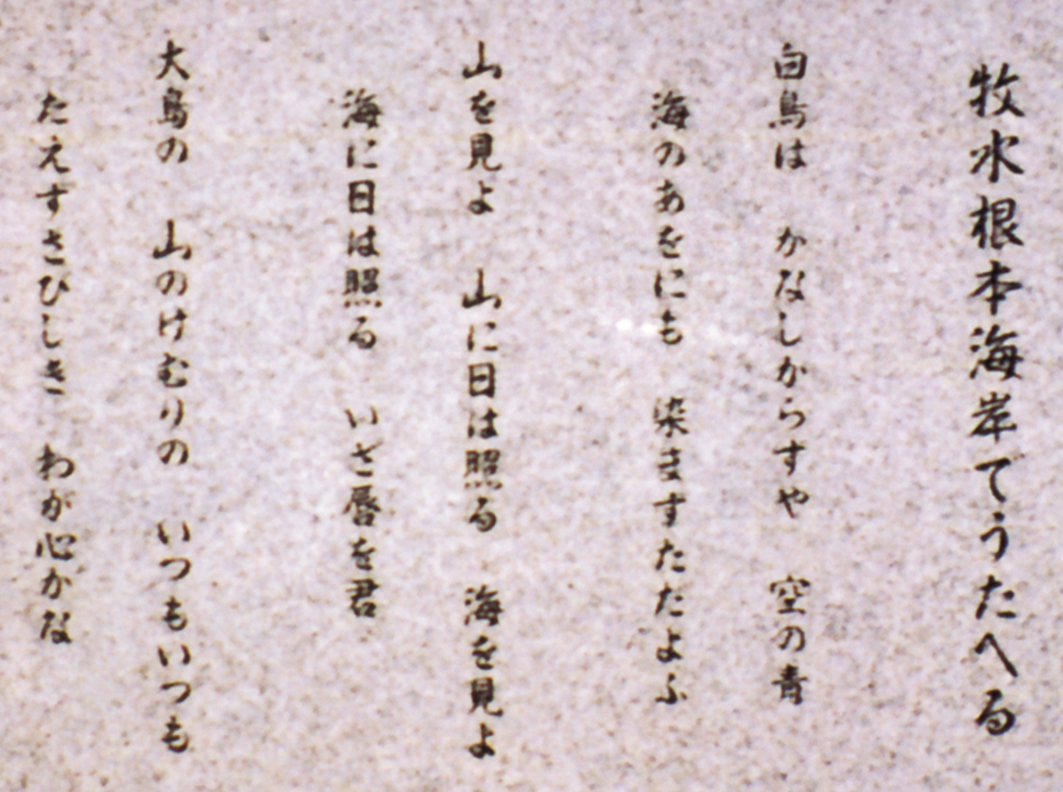 牧水根本海岸てうたへる
白鳥は　かなしからすや　空の青
海のあをにも　染ますたたよふ
山を見よ　山に日は照る　海を見よ
海に日は照る　いざ唇を君
大島の　山のけむりの　いつもいつも
たえすさひしき　わが心かな